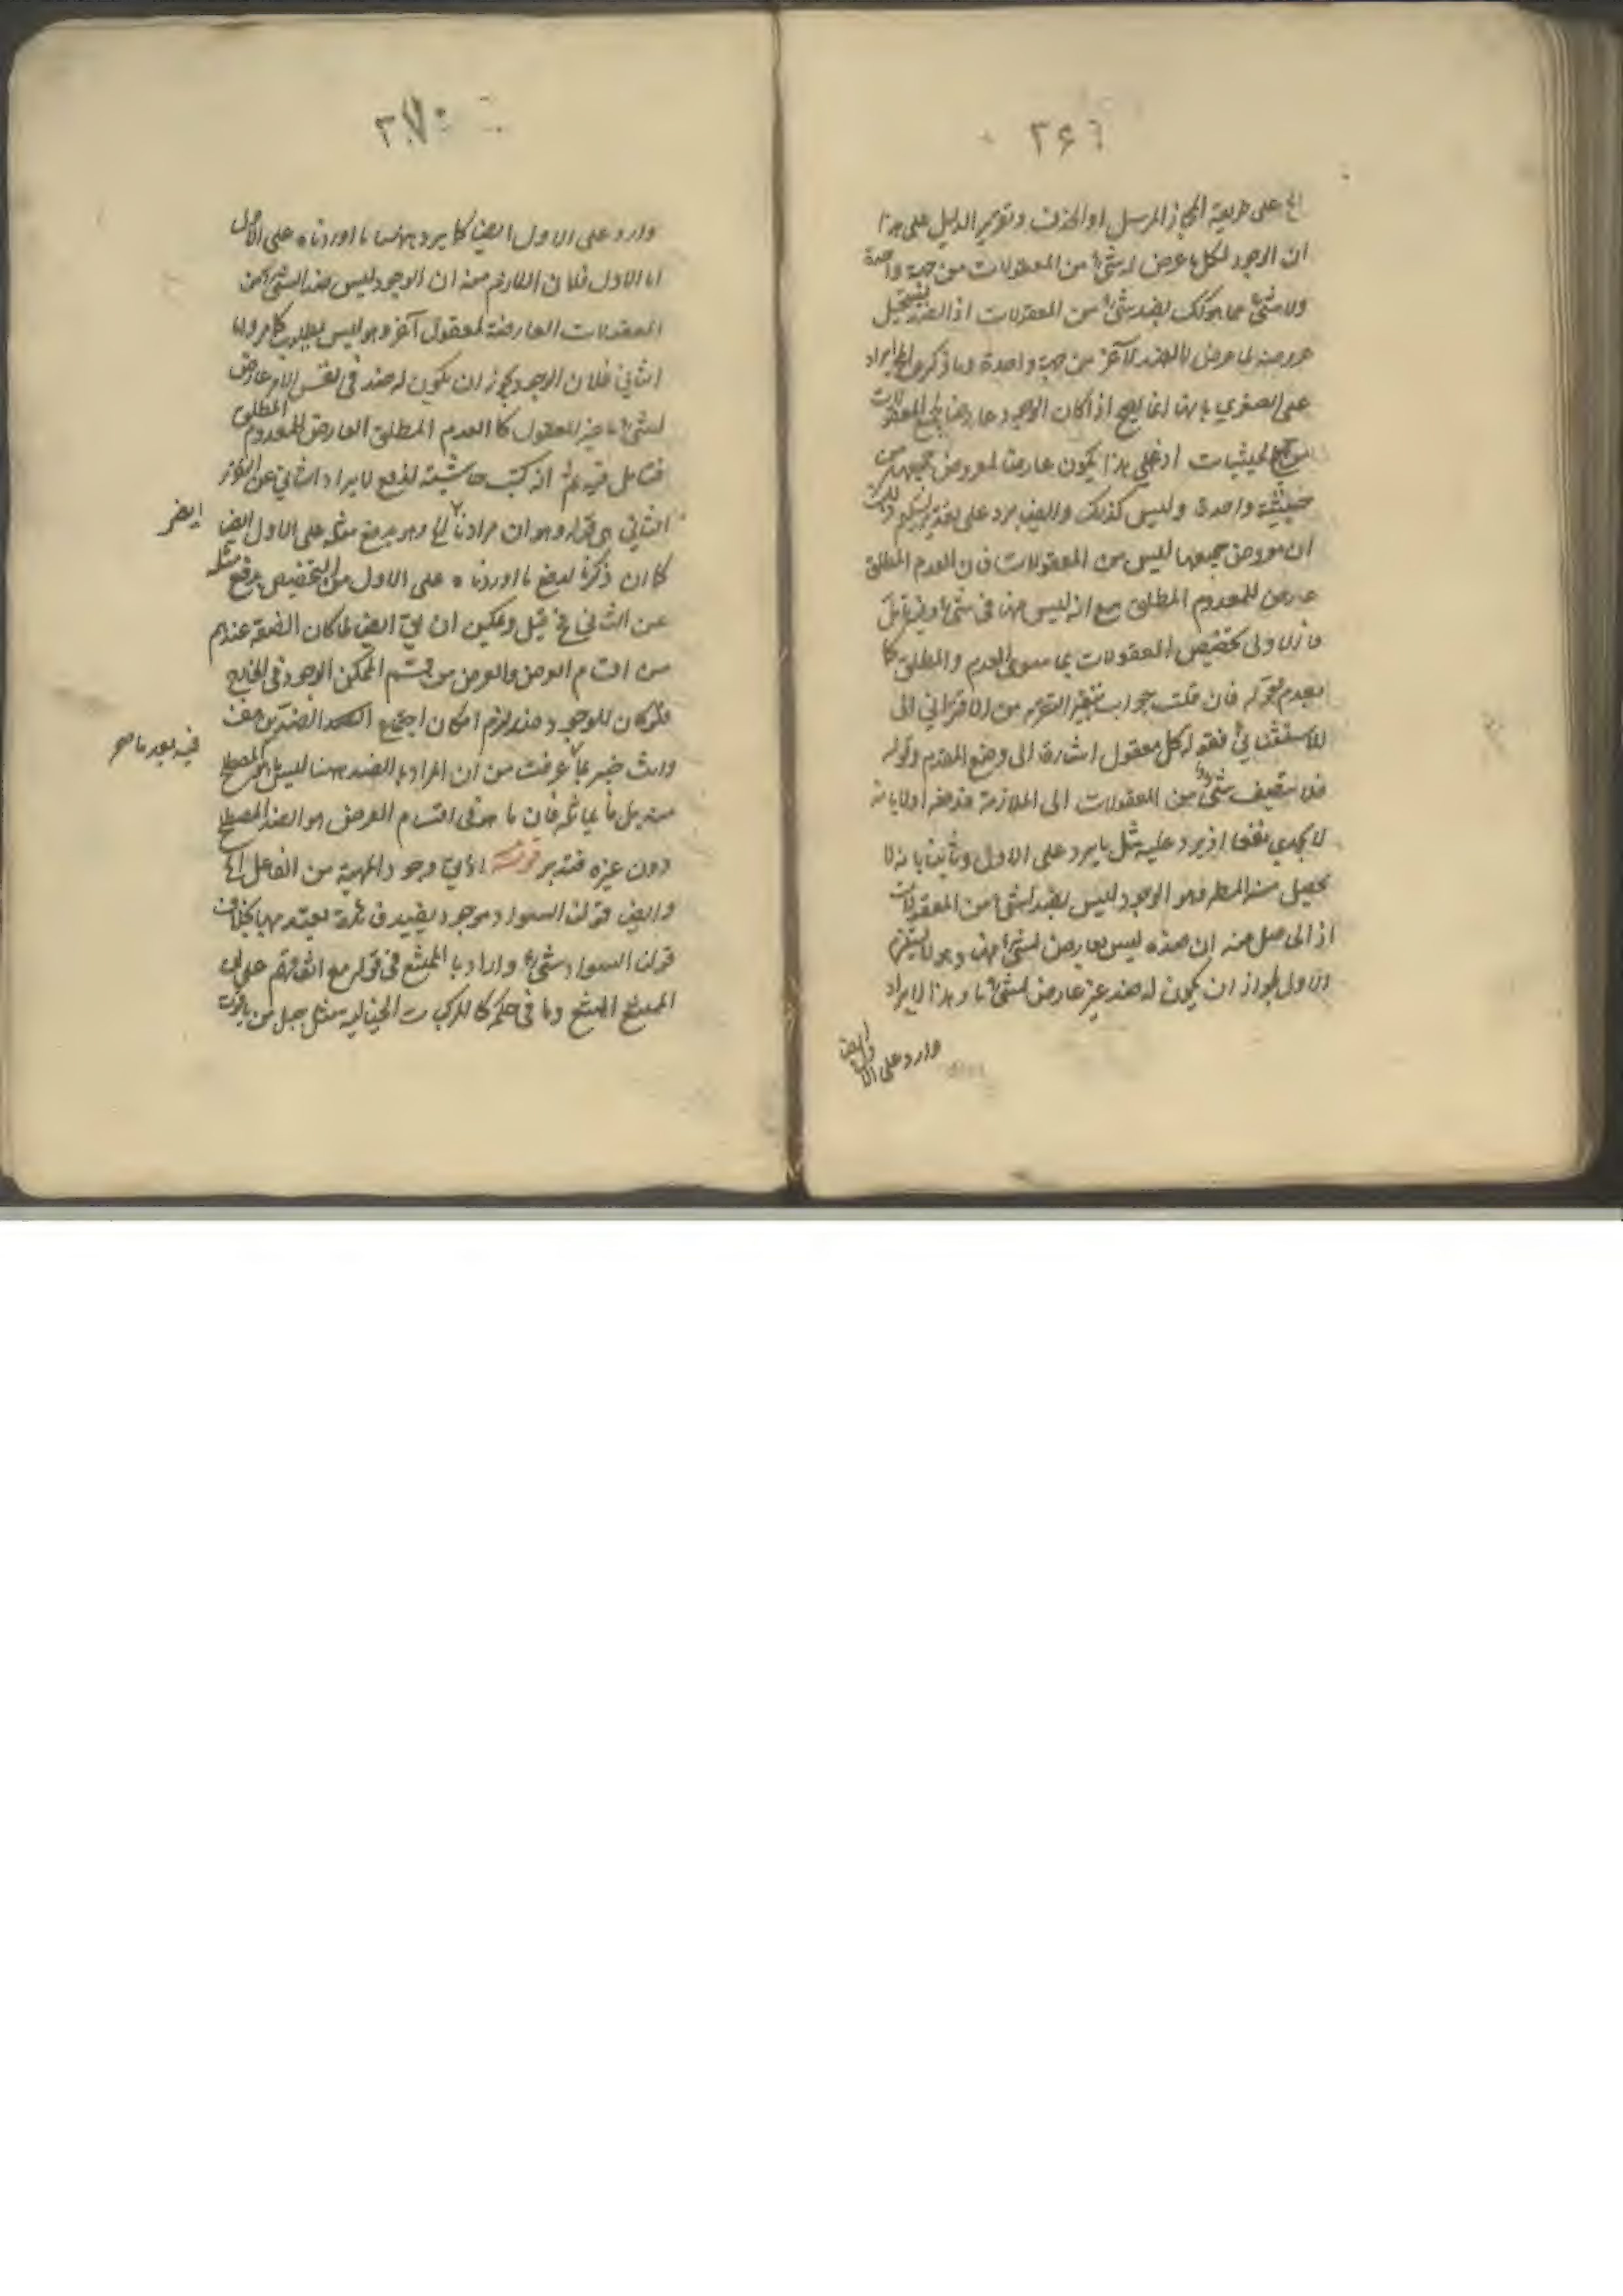 ۲۶۹
الخ على طريقة المجاز المرسل او الحذف وتقرير الدليل على هذا
ان الوجود لكل ما عرض له شئ من المعقولات من جهة واحدة
ولا شئ مما هو كذلك بضد شئ من المعقولات اذ الضد يستحيل
عروضه لما عرض له الضد الآخر من جهة واحدة وما ذكره الايراد
على الصغرى بانها انما يصح اذا كان الوجود عارضا لجميع المعقولات
من جميع الحيثيات اذ على هذا يكون عارضا لمعروض جميعها من
حيثية واحدة وليس كذلك وايضا يرد على تقدير تسليم ذلك
ان معروض جميعها ليس من المعقولات فان العدم المطلق
عارض للمعدوم المطلق مع انه ليس منها في شئ وفيه تأمل
فالاولى تخصيص المعقولات بما سوى العدم والمطلق كما
بعدم نحوه فان قلت جواب بتغيير التقرير من الاقتراني الى
الاستثنائي فقوله لكل معقول اشارة الى وضع المقدم وقوله
فلا من المعقولات الى الملازمة فدفعه اولا بانه
لا يجدي نفعا اذ يرد عليه مثل ما يرد على الاول وثانيا بانه لا
يحصل منه المط فهو الوجود ليس بضد لشئ من المعقولات
اذ الحاصل منه ان ضده ليس بعارض لشئ منها وهو لا يستلزم
الاول لجواز ان يكون له ضد غير عارض لشئ ما وهذا الايراد
وارد على الاول ايضا
۲۷۰
وارد على الاول ايضا كما يرد ههنا ما اوردناه على الاول
اما الاول فلان اللازم منه ان الوجود ليس ضد الشئ من
المعقولات العارضة لمعقول آخر وهو ليس بمطلوب كما مر واما
الثاني فلان الوجود يجوز ان يكون له ضد في نفس الامر عارض
لشئ ما غير المعقول كالعدم المطلق العارض للمعدوم المطلق
فتأمل فيه ثم انه كتب حاشية لدفع الايراد الثاني عن
الثاني هي قوله وهو ان مرادنا الخ وهو يدفع مثله على الاول ايضا
ايضر
كما ان ذكرنا لدفع ما اوردناه على الاول من التخصيص يدفع مثله
عن الثاني قيل ويمكن ان يق ايضا لما كان الضد عندهم
من اقسام العرض والعرض من قسم الممكن الوجود في الخارج
فلو كان للوجود ضد لزم امكان اجتماع الضدين هف
فيه بعد ما صر
وانت خبير بما عرفت من ان المراد بالضد ههنا ليس ما هو المصطلح
منه بل ما يماثله فان ما هو في اقسام العرض هو الضد المصطلح
دون غيره فتدبر قوله لا يق وجود الماهية من الفاعل الخ
وايضا قولنا السواد موجود يفيد فائدة يعتد بها بخلاف
قولنا السواد شئ واراد بالممتنع في قوله مع اتفاقهم على ان
الممتنع الممتنع وما في حكمه كالمركبات الخيالية مثل جبل من ياقوت